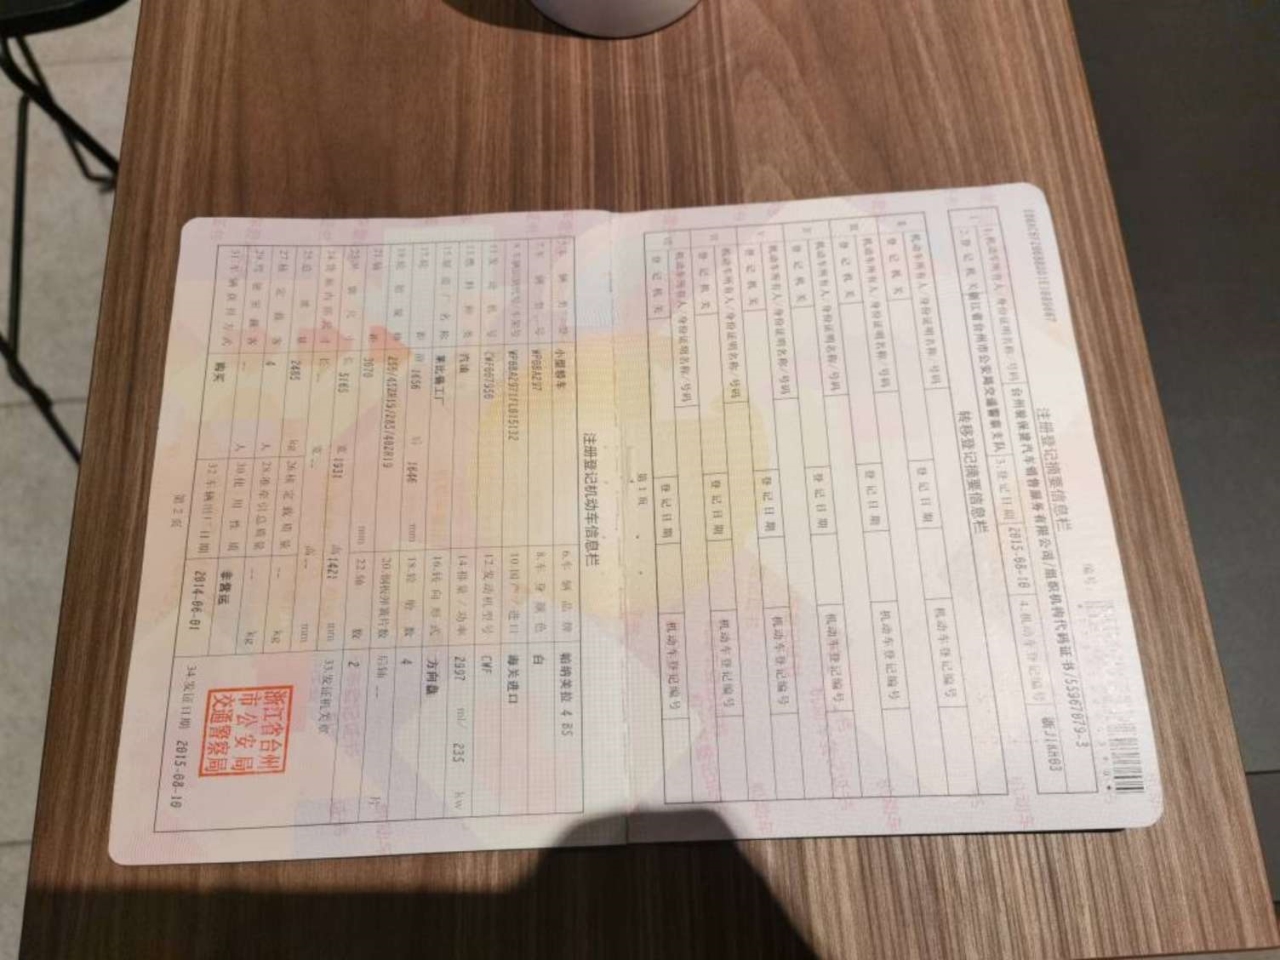 注册登记摘要信息栏
编号
1.机动车所有人/身份证明名称/号码
2.登记机关 浙江省台州市公安局交通警察支队 3.登记日期 2015-08-10 4.机动车登记编号
转移登记摘要信息栏
机动车所有人/身份证明名称/号码
登记机关 登记日期 机动车登记编号
机动车所有人/身份证明名称/号码
登记机关 登记日期 机动车登记编号
机动车所有人/身份证明名称/号码
登记机关 登记日期 机动车登记编号
机动车所有人/身份证明名称/号码
登记机关 登记日期 机动车登记编号
机动车所有人/身份证明名称/号码
登记机关 登记日期 机动车登记编号
机动车所有人/身份证明名称/号码
登记机关 登记日期 机动车登记编号
第1页
注册登记机动车信息栏
5.车辆类型 小型轿车 6.车辆品牌 帕纳美拉 4 BS
7.车辆型号 WP0BA297 8.车身颜色 白
9.车辆识别代号/车架号 10.国产/进口 海关进口
11.发动机号 12.发动机型号 CWF
13.燃料种类 汽油 14.排量/功率 2997 ml/ 235 kw
15.制造厂名称 莱比锡工厂 16.转向形式 方向盘
17.轮距 前 1656 后 1646 mm 18.轮胎数 4
19.轮胎规格 20.钢板弹簧片数 后轴 -- 片
21.轴距 3070 mm 22.轴数 2
23.外廓尺寸 长 5165 宽 1931 高 1421 mm 33.发证机关章
24.货厢内部尺寸 长 -- 宽 -- 高 -- mm
25.总质量 2485 kg 26.核定载质量 -- kg
27.核定载客 4 人 28.准牵引总质量 -- kg
29.驾驶室载客 -- 人 30.使用性质 非营运
31.车辆获得方式 购买 32.车辆出厂日期 2014-06-01 34.发证日期 2015-08-10
浙江省台州
市公安局
交通警察局
第2页